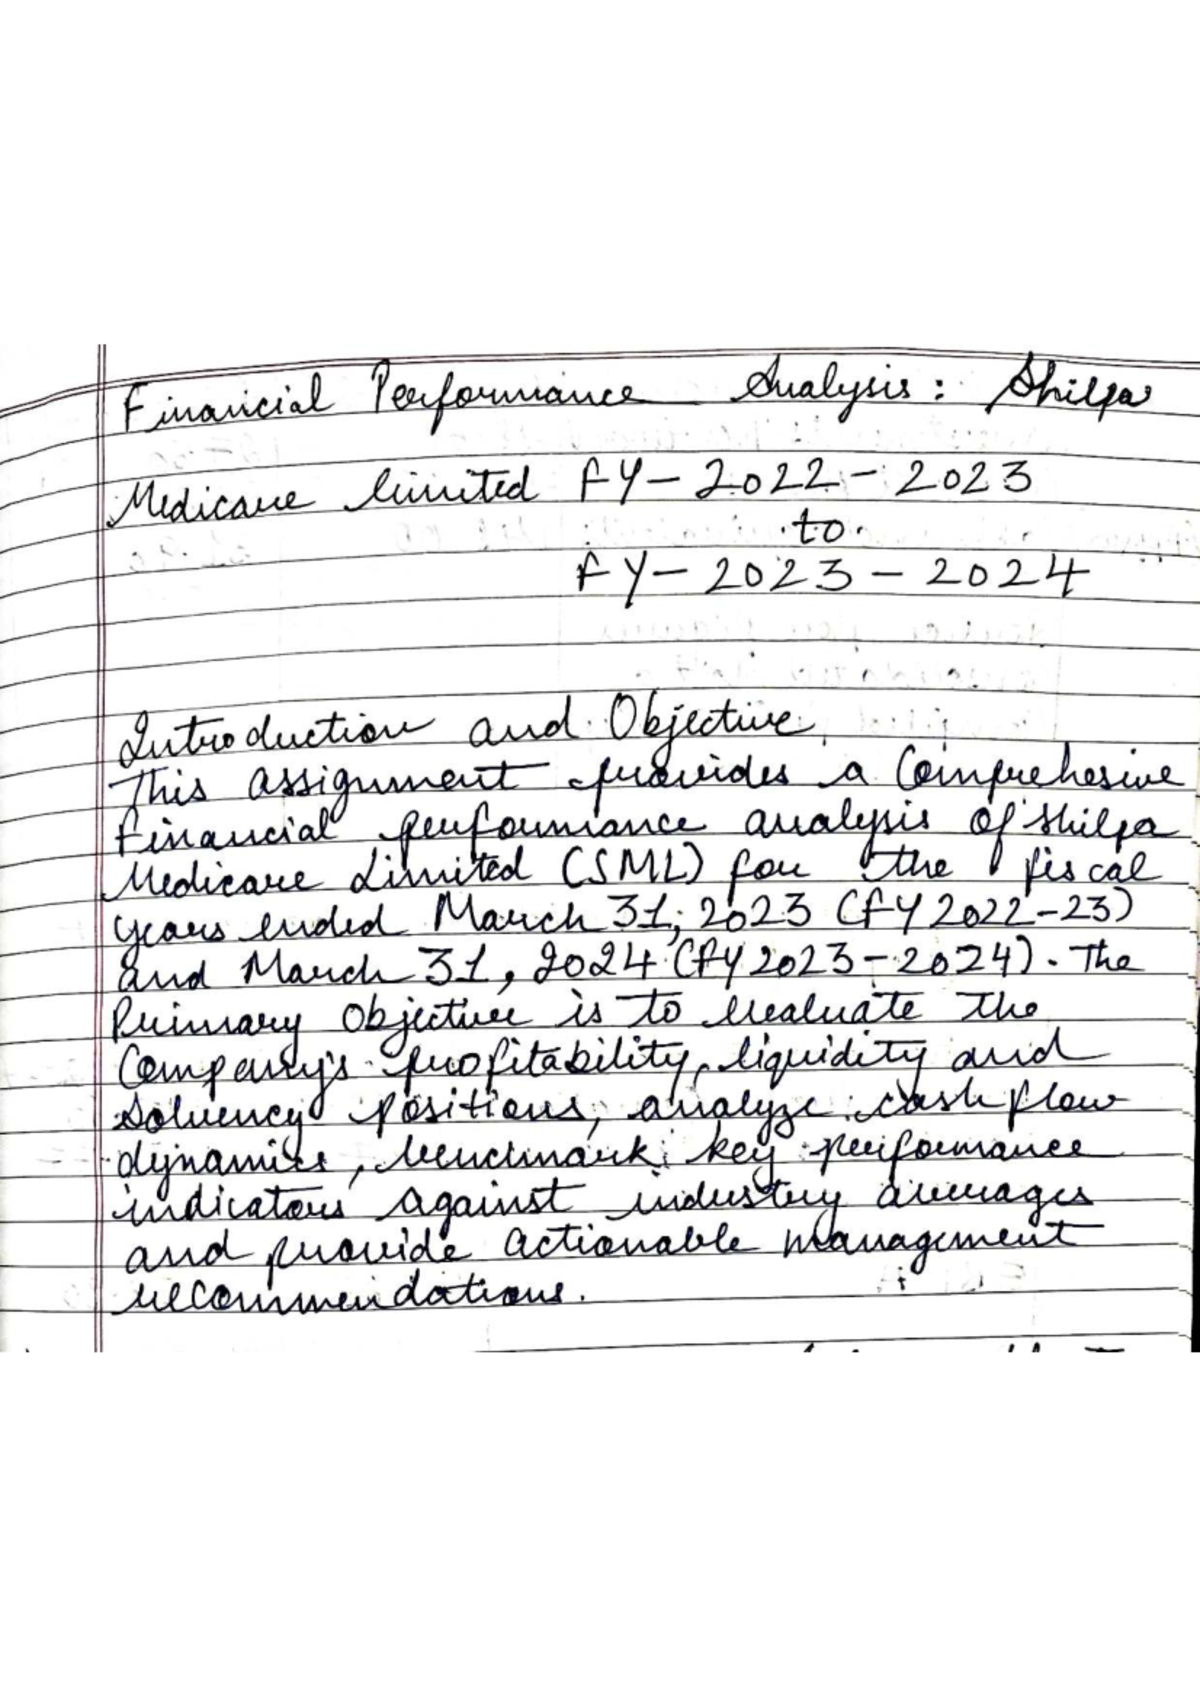 Financial Performance Analysis: Shilpa
Medicare limited FY-2022-2023
to
FY-2023-2024
Introduction and Objective
This assignment provides a Comprehesive
Financial performance analysis of Shilpa
Medicare Limited (SML) for the fiscal
years ended March 31, 2023 (FY2022-23)
and March 31, 2024 (FY2023-2024). The
Primary objective is to evaluate the
Company's profitability, liquidity and
Solvency positions, analyze cash flow
dynamics, benchmark key performance
indicators against industry averages
and provide actionable management
recommendations.